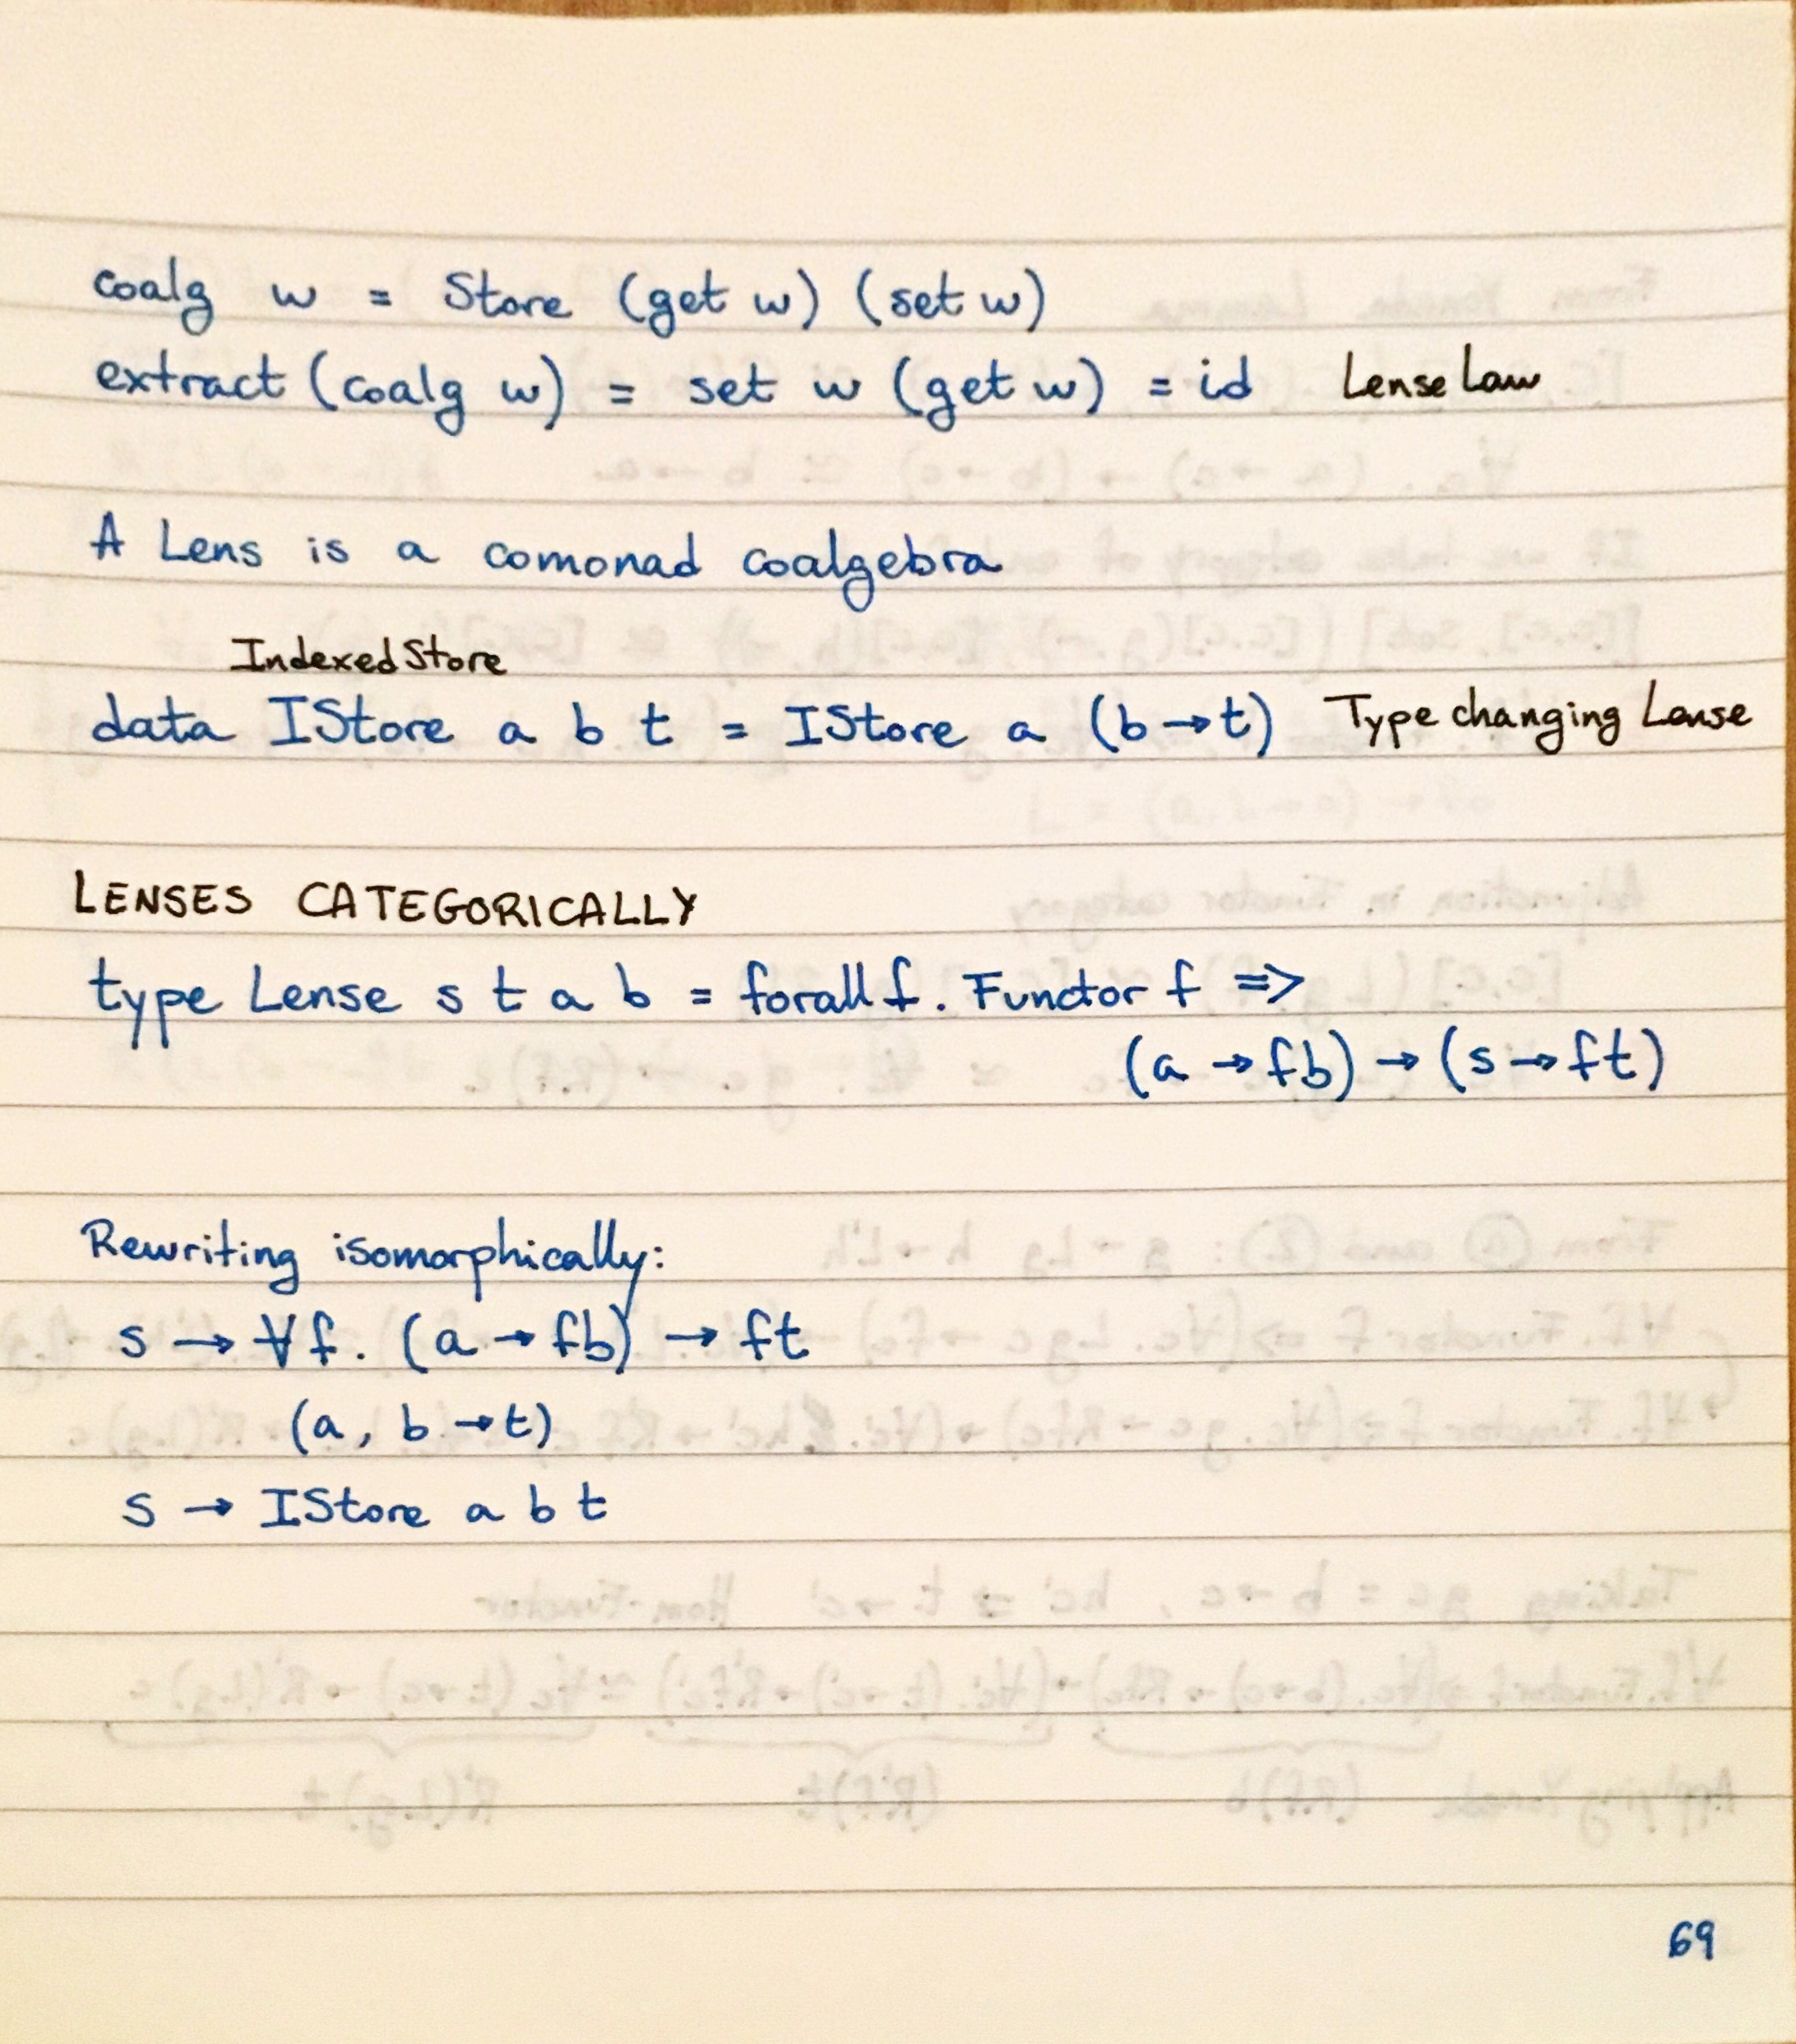 coalg w = Store (get w) (set w)
extract (coalg w) = set w (get w) = id Lense Law
A Lens is a comonad coalgebra
Indexed Store
data IStore a b t = IStore a (b → t) Type changing Lense
LENSES CATEGORICALLY
type Lense s t a b = forall f. Functor f =>
(a → fb) → (s → ft)
Rewriting isomorphically:
s → ∀f. (a → fb) → ft
(a, b → t)
s → IStore a b t
69